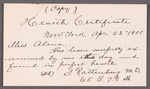 (Copy)
Health Certificate
New York Apr 22 1901
Miss Alma
Has been carefully ex
amined by me this day and
found in perfect health
S. Rattenberg M.D.
65 E. 7th